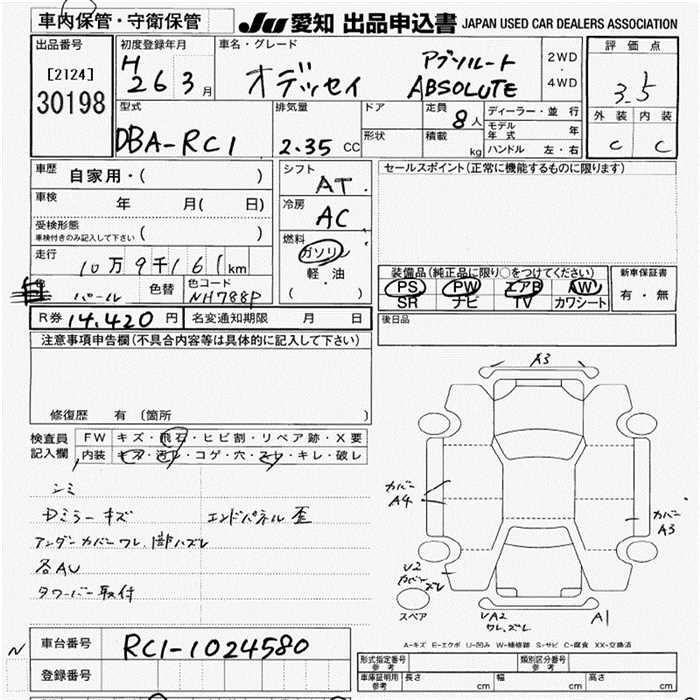 車内保管・守衛保管
JU 愛知 出品申込書 JAPAN USED CAR DEALERS ASSOCIATION
出品番号
[2124]
30198
初度登録年月
H 26 3月
車名・グレード
オデッセイ
アブソルート
ABSOLUTE
2WD
・
4WD
評価点
3.5
外装 内装
C C
型式
DBA-RC1
排気量
2.35 CC
ドア
形状
定員 8人
積載 kg
ディーラー・並行
モデル年式 年
ハンドル 左・右
車歴 自家用・( )
車検 年 月( 日)
受検形態
車検付きのみ記入して下さい ( )
走行 10万9千161km
色 パール 色替 色コード NH788P
シフト
AT
冷房
AC
燃料
ガソリン
軽・油
( )
セールスポイント(正常に機能するものに限ります)
装備品(純正品に限り○をつけてください)
PS PW エアB AW
SR ナビ TV カワシート
新車保証書
有・無
R券 14.420 円 名変通知期限 月 日
後日品
注意事項申告欄(不具合内容等は具体的に記入して下さい)
修復歴 有 (箇所 )
検査員記入欄
FW キズ・飛石・ヒビ割・リペア跡・X要
内装 キズ・汚レ・コゲ・穴・スレ・キレ・破レ
シミ
Dミラーキズ エンドパネル歪
アンダーカバーワレ、
各AU
タワーバー取付
A3
カバー
A4
カバー
A3
U2
カバーズレ
スペア
UA2
ワレ、ズレ
A1
A-キズ E-エクボ U-凹み W-補修跡 S-サビ C-腐食 XX-交換済
N
車台番号 RC1-1024580
登録番号
形式指定番号
参考
類別区分番号
参考
車庫証明用
参考
長さ cm 幅 cm 高さ cm